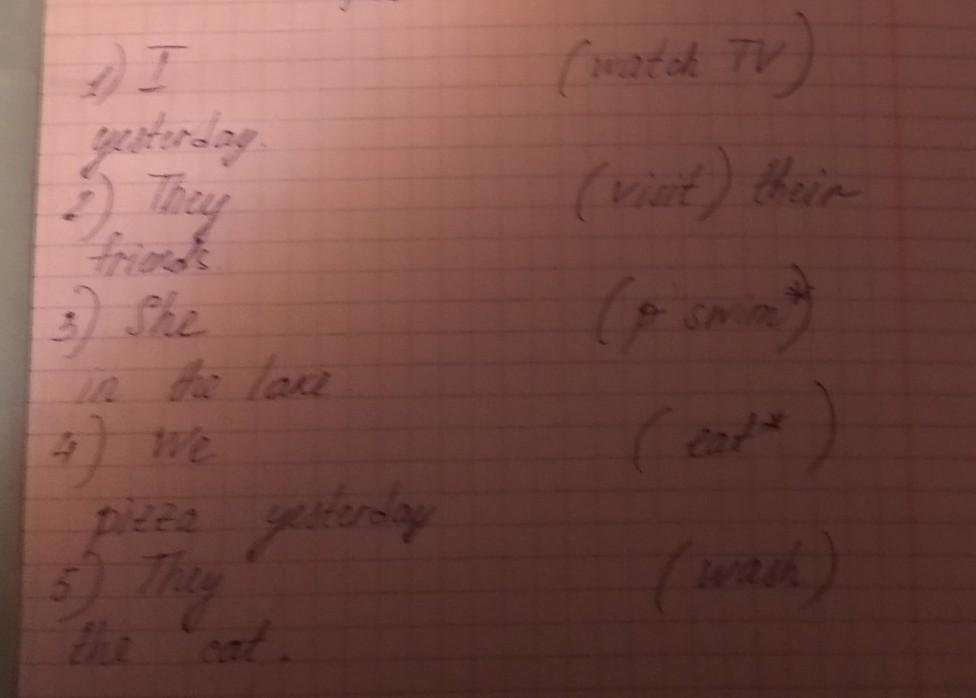 1) I (watch TV)
yesterday.
2) They (visit) their
friends.
3) She (swim*)
in the lake.
4) We (eat*)
pizza yesterday
5) They (wash)
the cat.